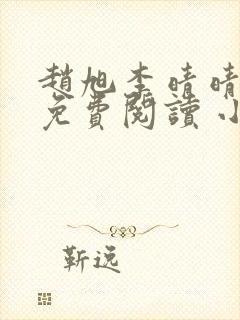 趙旭李晴晴
免費閱讀小
靳远